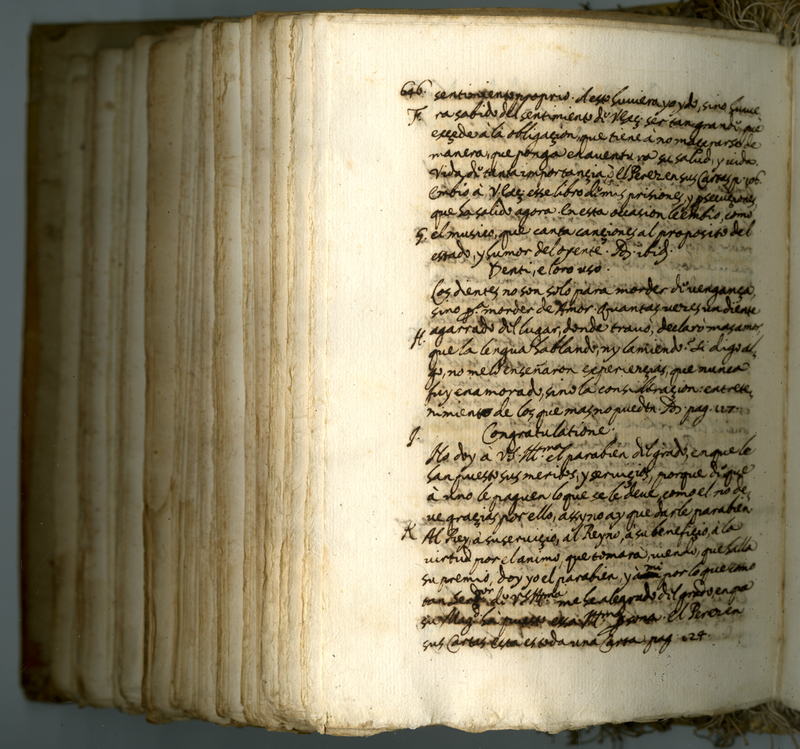 646. sentimiento proprio. d esto huviera yo ydo, si no huvie
F. ra sabido del sentimiento de V.Exª. ser tan grande, que
excede a la obligaçion, que tiene à no maceparse de
manera, que ponga en aventura su salud, y vida.
Vida de tanta importançia. El Perez en sus Cartas p. 106.
Embio à V.Exª. esse libro de mis prisiones, y persecuçiones,
que ha salido agora. En esta ocasion le embio, como
G. el musico, que canta cançiones al proposito del
estado, y humor del oyente. Pº. ibid.
Denti, e loro uso.
H. Los dientes no son solo para morder de vengança,
sino pª. morder de Amor. Quantas vezes un diente
agarrado del lugar, donde travò, declarò mas amor,
que la lengua hablando, ny lamiendo. Si digo al-
go, no me lo enseñaron experiençias, que nunca
fuy enamorado, sino la consideraçion: entrete-
nimiento de los que mas no pueden. Pº. pag. 127.
J. Congratulatione.
No doy à V.S. Illma. el parabien del grado, en que le
han puesto sus meritos, y serviçios, porque de que
à uno le paguen lo que se le deve, como el no de-
ve graçias por ello, assy no ay que darle parabien
K Al Rey, à su serviçio, al Reyno, à su benefiçio, à la
virtud por el animo, que tomarà, viendo, que halla
su premio, doy yo el parabien, y à mi por lo que como
tan de V.S. Illma. me he alegrado del grado en que
su Magd. ha puesto essa Illma. persona. El Perez en
sus Cartas esta es toda una Carta pag. 124.